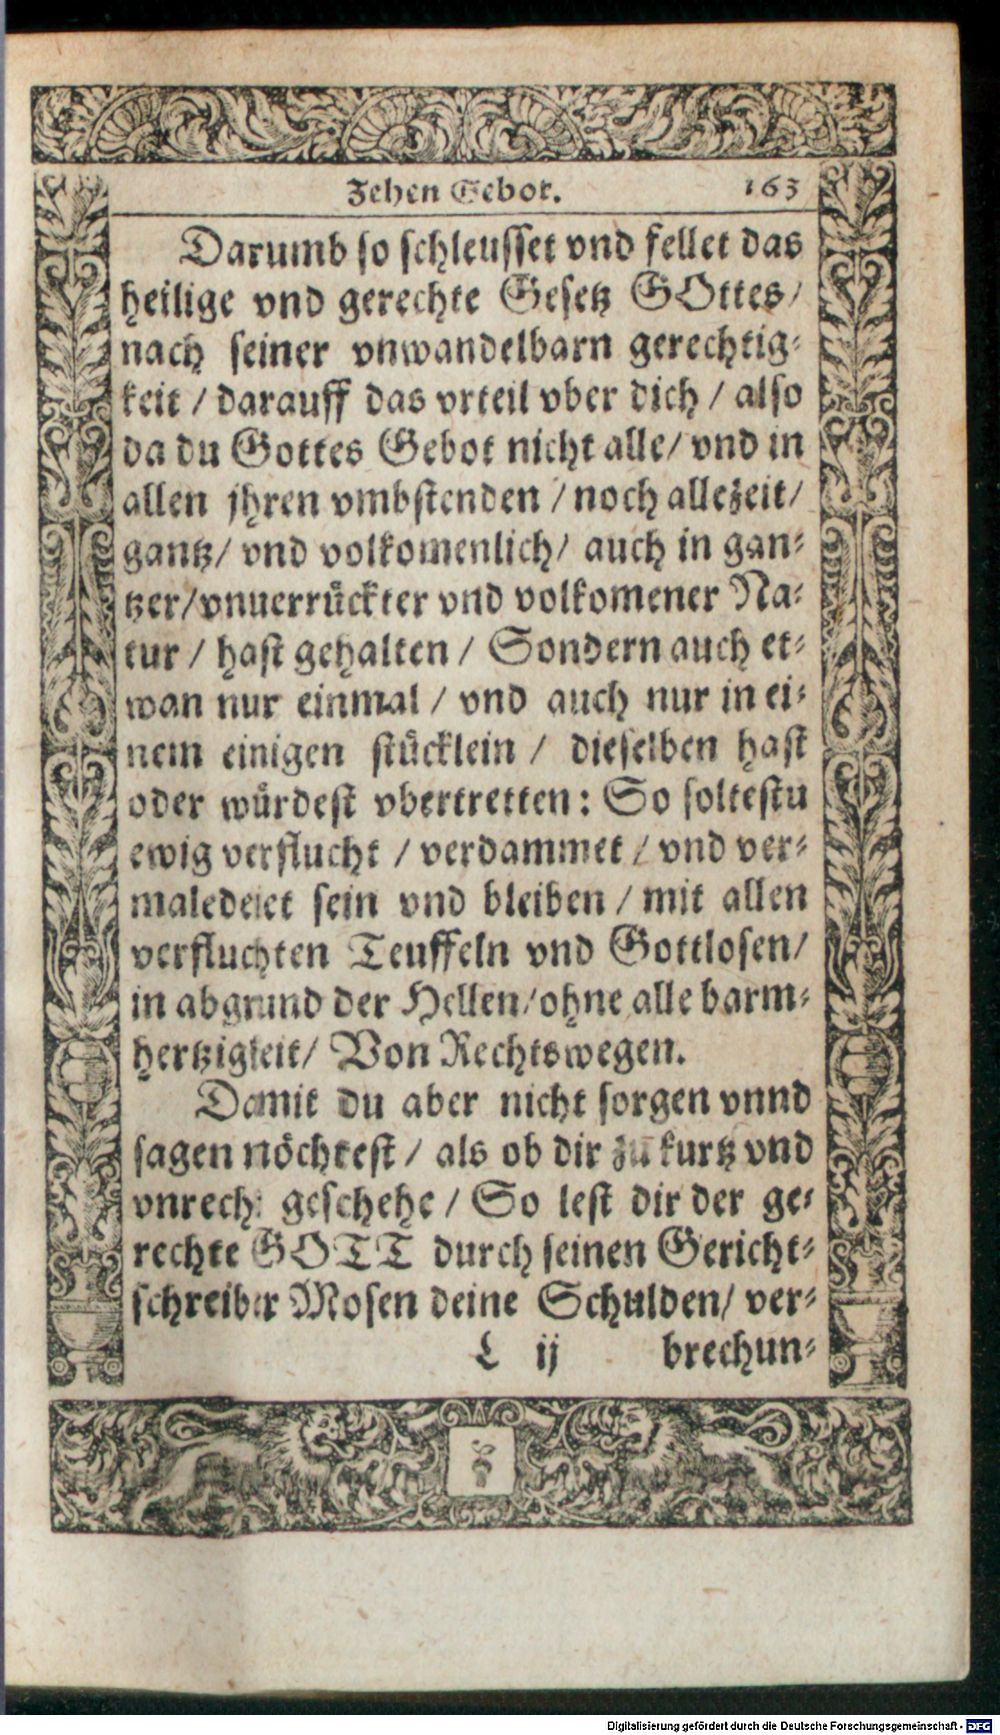 Zehen Gebot. 163
Darumb so schleusset vnd fellet das
heilige vnd gerechte Gesetz GOttes/
nach seiner vnwandelbarn gerechtig-
keit / darauff das vrteil vber dich / also
da du Gottes Gebot nicht alle/ vnd in
allen jhren vmbstenden / noch allezeit/
gantz/ vnd volkomenlich/ auch in gan-
tzer/vnuerrückter vnd volkomener Na-
tur / hast gehalten / Sondern auch et-
wan nur einmal / vnd auch nur in ei-
nem einigen stücklein / dieselben hast
oder würdest vbertretten: So soltestu
ewig verflucht / verdammet / vnd ver-
maledeiet sein vnd bleiben / mit allen
verfluchten Teuffeln vnd Gottlosen/
in abgrund der Hellen/ohne alle barm-
hertzigkeit/ Von Rechtswegen.
Damit du aber nicht sorgen vnnd
sagen möchtest / als ob dir zu kurtz vnd
vnrecht geschehe / So lest dir der ge-
rechte GOTT durch seinen Gericht-
schreiber Mosen deine Schulden/ ver-
L ij brechun-
Digitalisierung gefördert durch die Deutsche Forschungsgemeinschaft - DFG